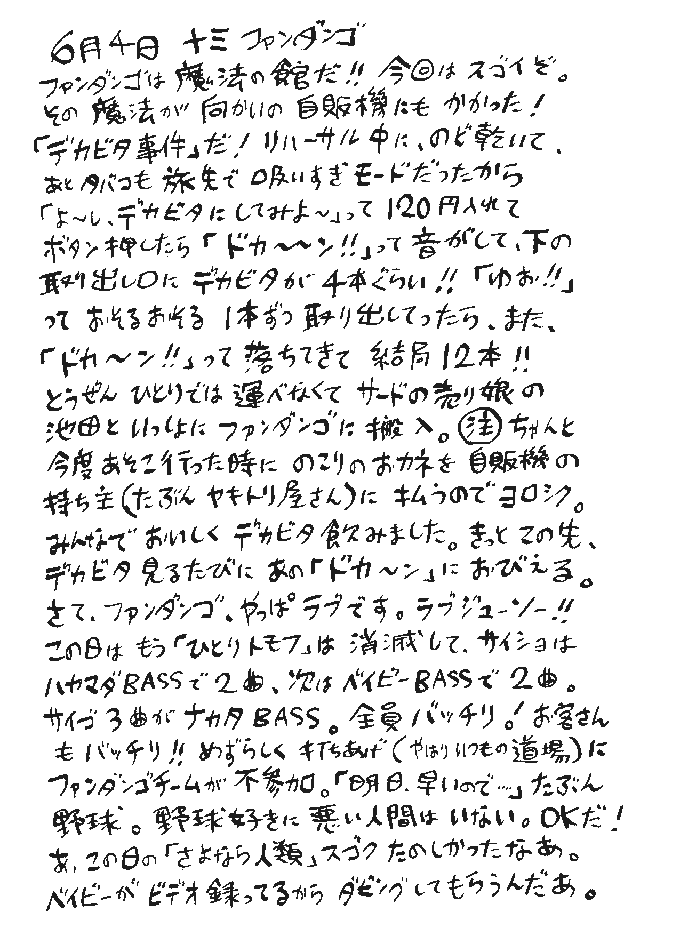 6月4日 十三 ファンダンゴ
ファンダンゴは 魔法の館だ!! 今回は スゴイぞ。
その 魔法が 向かいの 自販機にも かかった!
「デカビタ事件」だ! リハーサル 中に、のど乾いて、
あと タバコも 旅先で 吸いすぎ モードだったから
「よ〜し、デカビタにしてみよ〜」って 120円入れて
ボタン押したら 「ドカ〜〜ン!!」って 音がして、下の
取り出し口に デカビタが 4本ぐらい!! 「ゆお!!」
って おそるおそる 1本ずつ 取り出してったら、また、
「ドカ〜ン!!」って 落ちてきて 結局 12本!!
とうぜん ひとりでは 運べなくて サードの売り娘の
池田と いっしょに ファンダンゴに 搬入。㊟ ちゃんと
今度 あそこ行った時に のこりのおカネを 自販機の
持ち主(たぶん ヤキトリ屋さん)に キムうので ヨロシク。
みんなで おいしく デカビタ 飲みました。きっと この先、
デカビタ 見るたびに あの「ドカ〜ン」に おびえる。
さて、ファンダンゴ、やっぱ ラブです。ラブジューソー!!
この日は もう「ひとりトモフ」は 消滅して、サイショは
ハヤマダBASSで 2曲、次は ベイビーBASSで 2曲。
サイゴ 3曲が ナカタ BASS。全員 バッチリ! お客さん
も バッチリ!! めずらしく 打ちあげ(やはり いつもの 道場)に
ファンダンゴチームが 不参加。「明日、早いので…」たぶん
野球。野球好きに 悪い人間は いない。OKだ!
あ、この日の「さよなら人類」スゴク たのしかったなあ。
ベイビーが ビデオ録ってるから ダビングしてもらうんだあ。